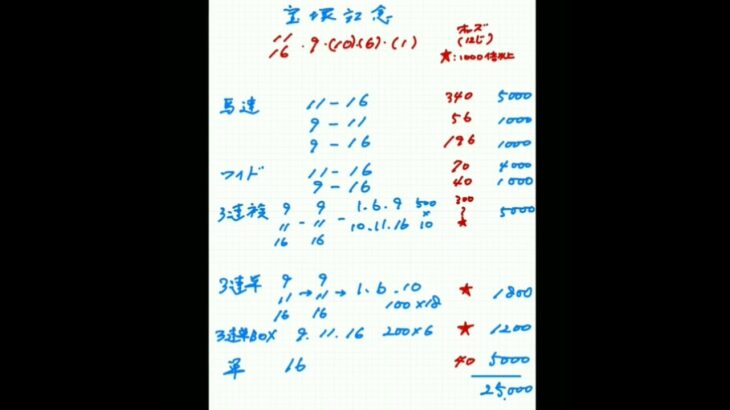 宝塚記念
11
16 ・9・(10)(6)・(1)
オッズ
(12じ)
★:1000倍以上
馬連 11-16 340 5000
9-11 56 1000
9-16 196 1000
ワイド 11-16 70 4000
9-16 40 1000
3連複 9 9 1.6.9 500 300
11 - 11 - 10.11.16 × 10 ~ 5000
16 16 ★
3連単 9 9
11→11→1.6.10 ★ 1800
16 16 100×18
3連単BOX 9.11.16 200×6 ★ 1200
単 16 40 5000
25,000